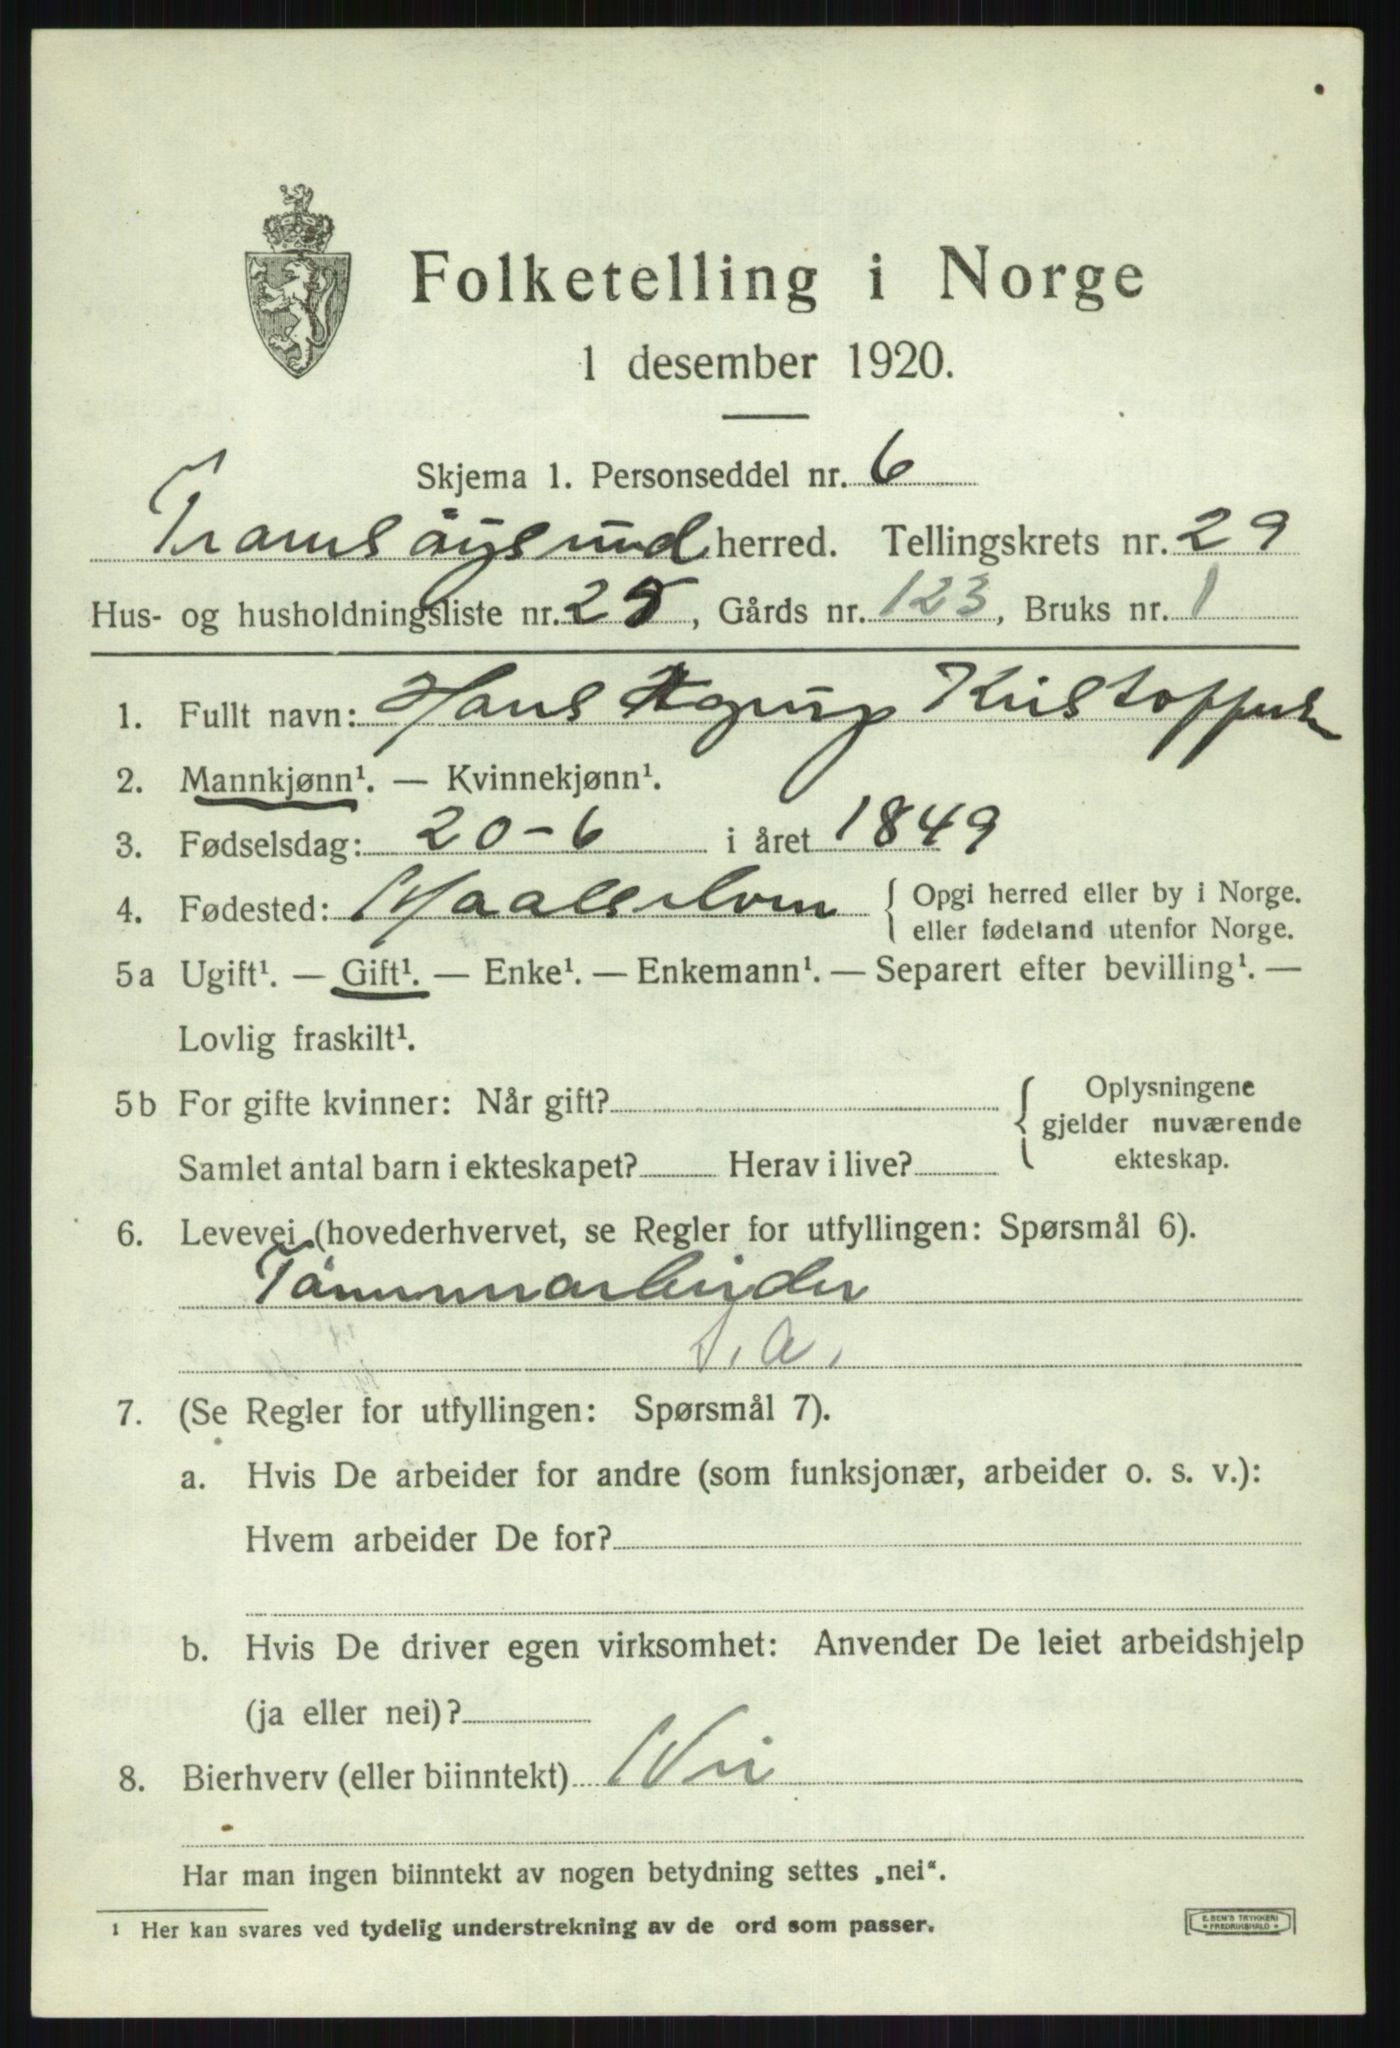 Folketelling i Norge
1 desember 1920.
Skjema 1. Personseddel nr. 6
Tromsöysund herred. Tellingskrets nr. 29
Hus- og husholdningsliste nr. 25, Gårds nr. 123, Bruks nr. 1
1. Fullt navn: Hans Agrup Kristoffersen
2. Mannkjønn¹. — Kvinnekjønn¹.
3. Fødselsdag: 20-6 i året 1849
4. Fødested: Maalselven { Opgi herred eller by i Norge.
eller fødeland utenfor Norge.
5a Ugift¹. — Gift¹. — Enke¹. — Enkemann¹. — Separert efter bevilling¹. —
Lovlig fraskilt¹.
5b For gifte kvinner: Når gift? { Oplysningene
gjelder nuværende
Samlet antal barn i ekteskapet? Herav i live?
ekteskap.
6. Levevei (hovederhvervet, se Regler for utfyllingen: Spørsmål 6).
Tömmerarbeider
S. a.
7. (Se Regler for utfyllingen: Spørsmål 7).
a. Hvis De arbeider for andre (som funksjonær, arbeider o. s. v.):
Hvem arbeider De for?
b. Hvis De driver egen virksomhet: Anvender De leiet arbeidshjelp
(ja eller nei)?
8. Bierhverv (eller biinntekt) Nei
Har man ingen biinntekt av nogen betydning settes „nei“.
¹ Her kan svares ved tydelig understrekning av de ord som passer.
E. SEM'S TRYKKERI
• FREDRIKSHALD •